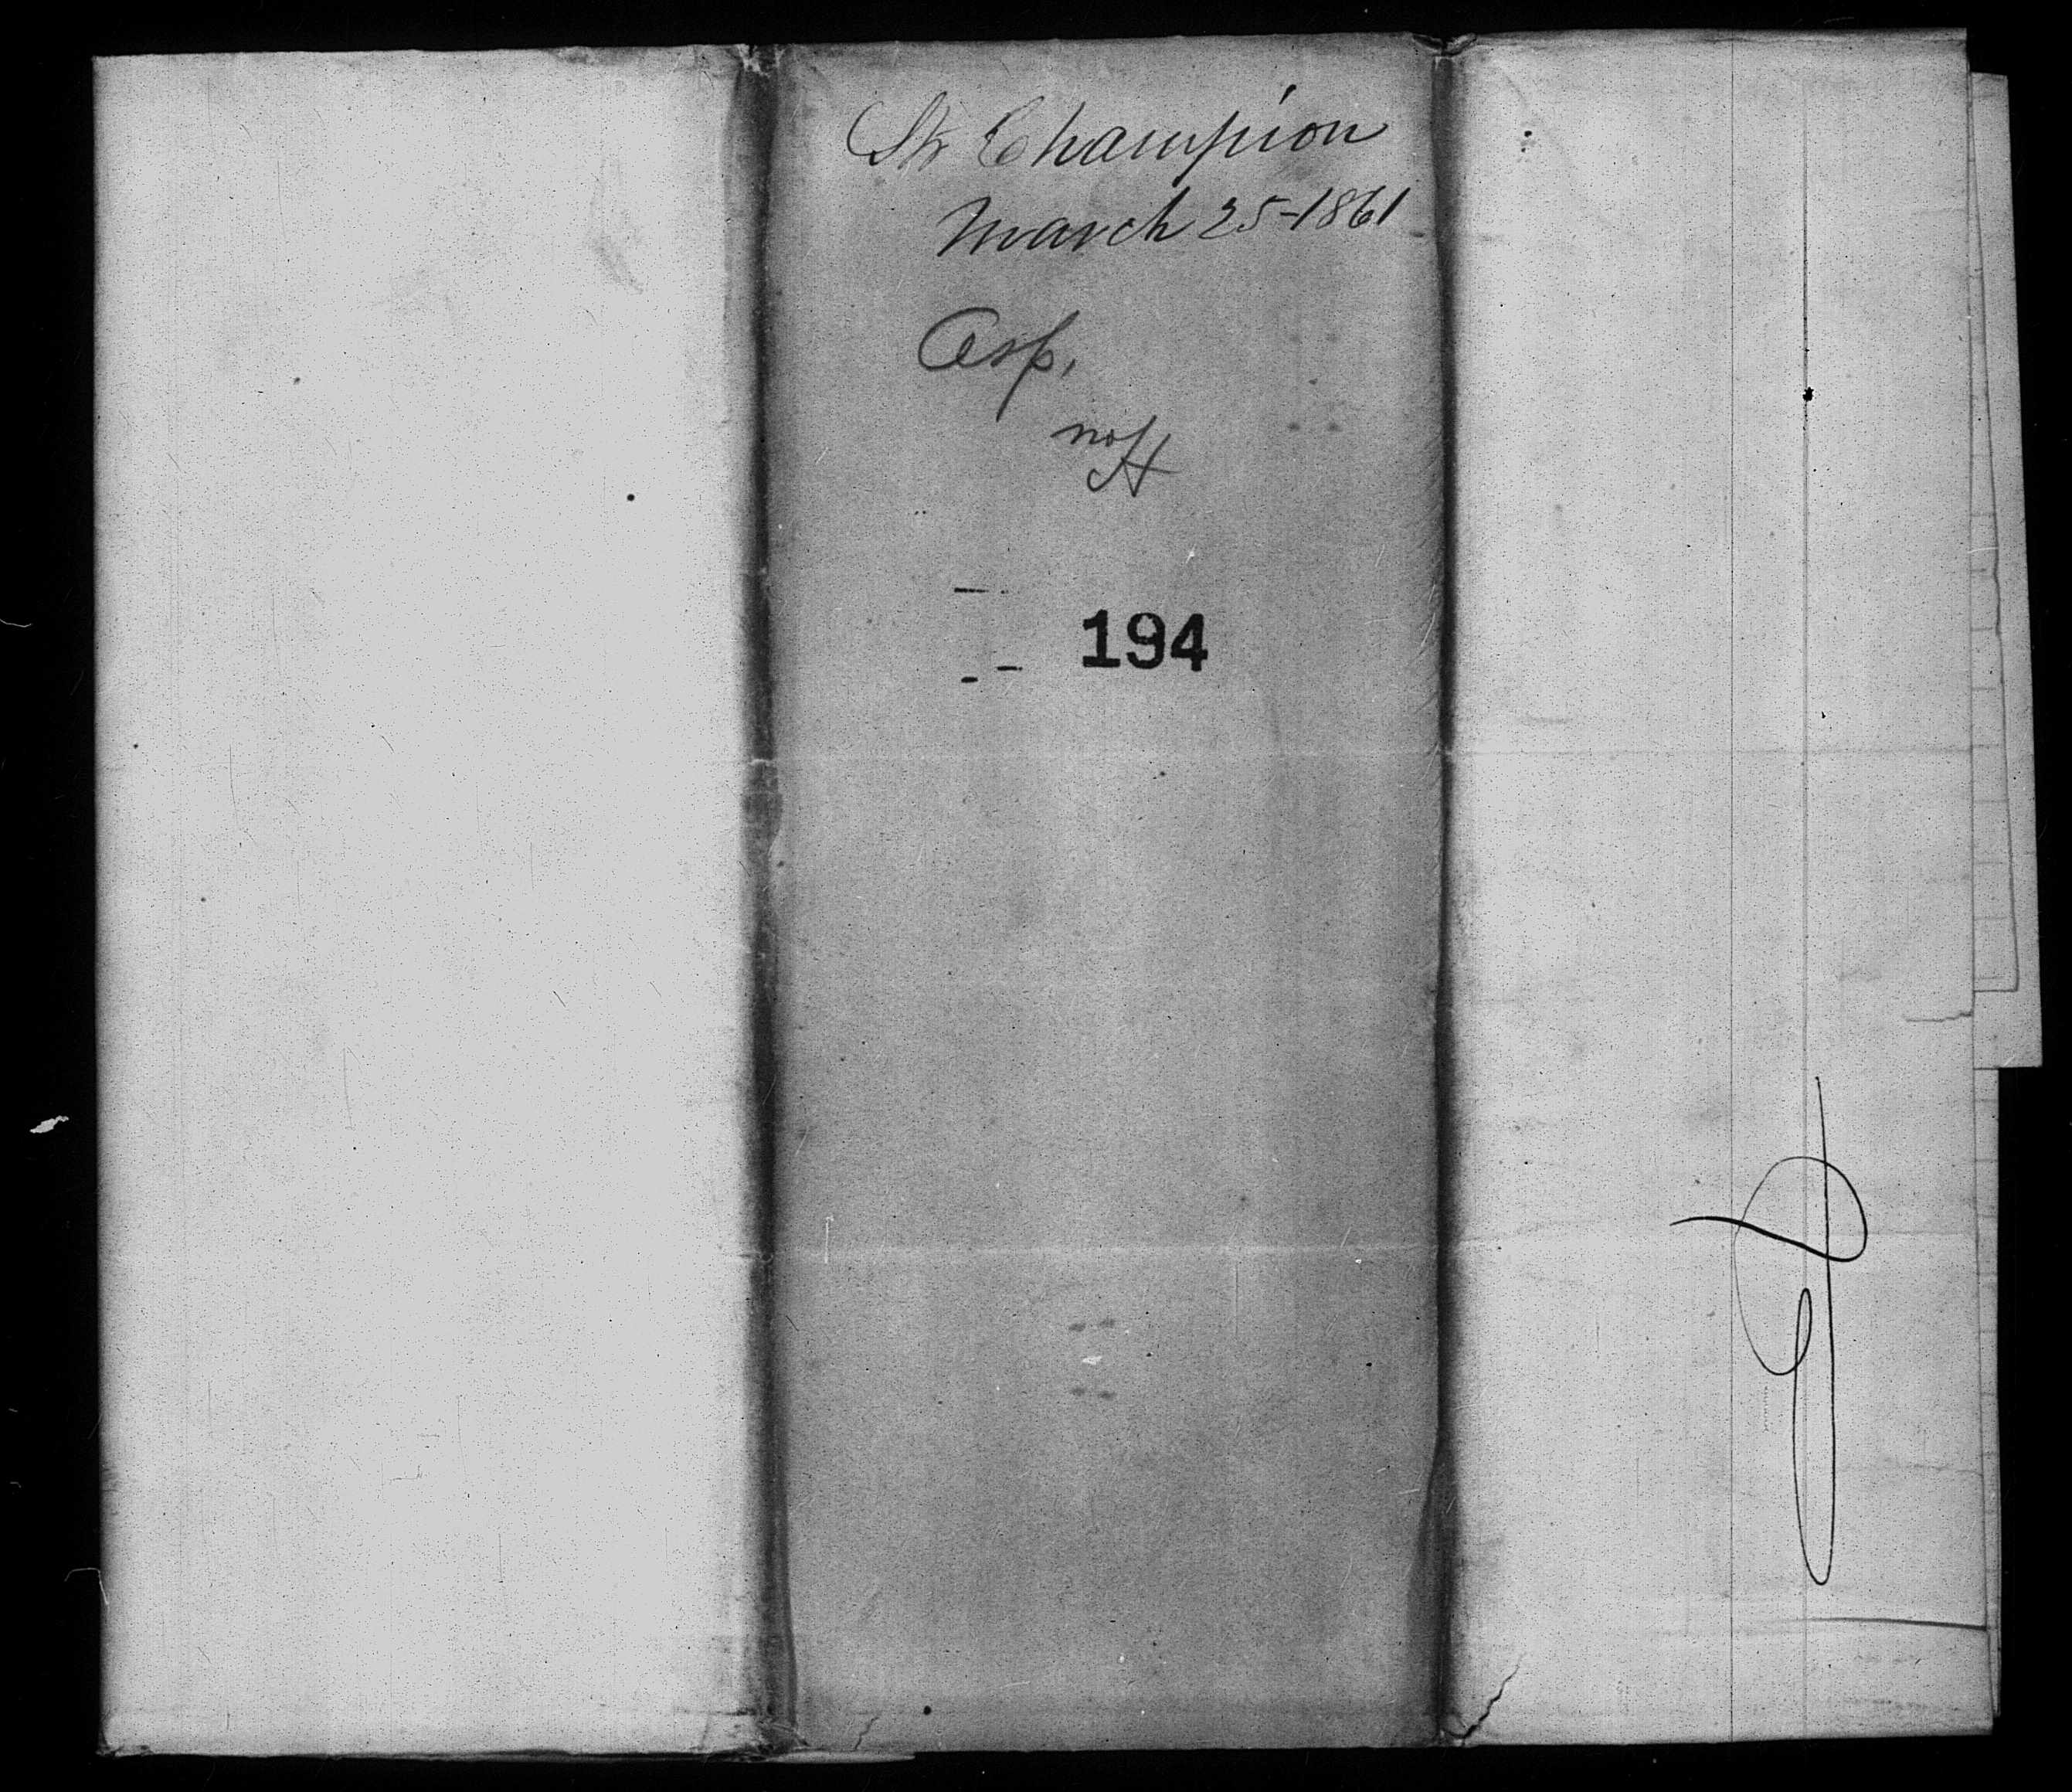 Str Champion
March 25-1861
Asp,
194